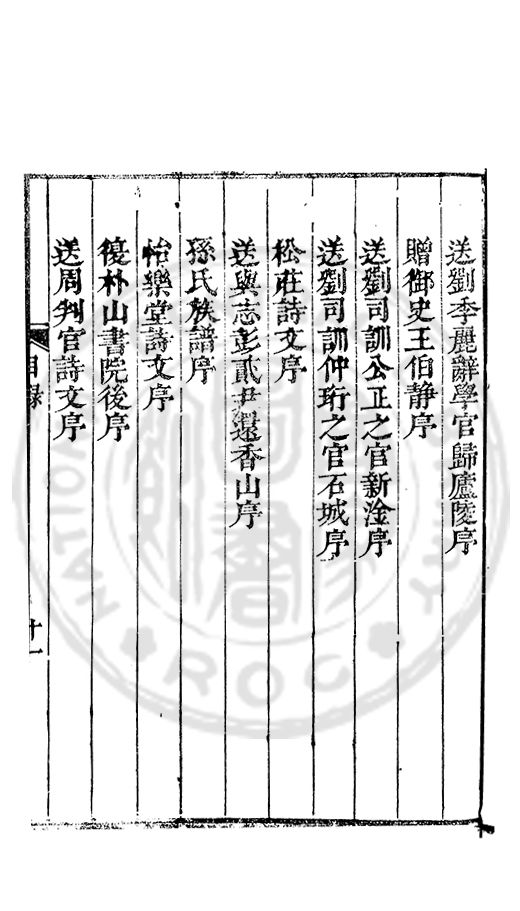 送劉季麗辭學官歸廬陵序
贈御史王伯静序
送劉司訓公正之官新淦序
送劉司訓仲珩之官石城序
松莊詩文序
送與志彭貳尹還香山序
孫氏族譜序
怡樂堂詩文序
復朴山書院後序
送周判官詩文序
目録
十一